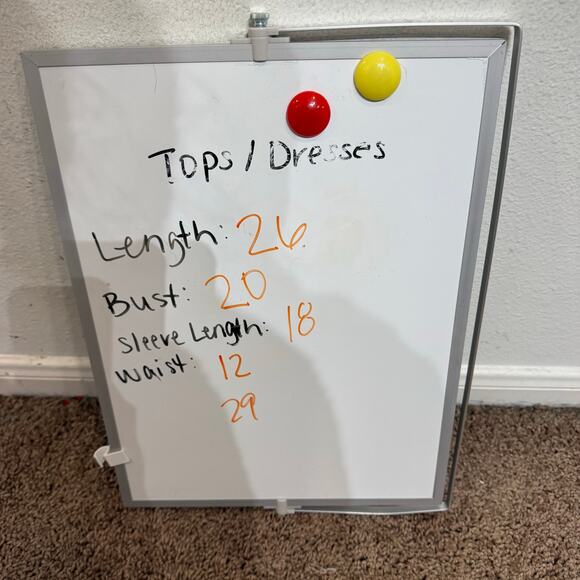 Tops / Dresses
Length: 26
Bust: 20
Sleeve Length: 18
Waist: 12
29